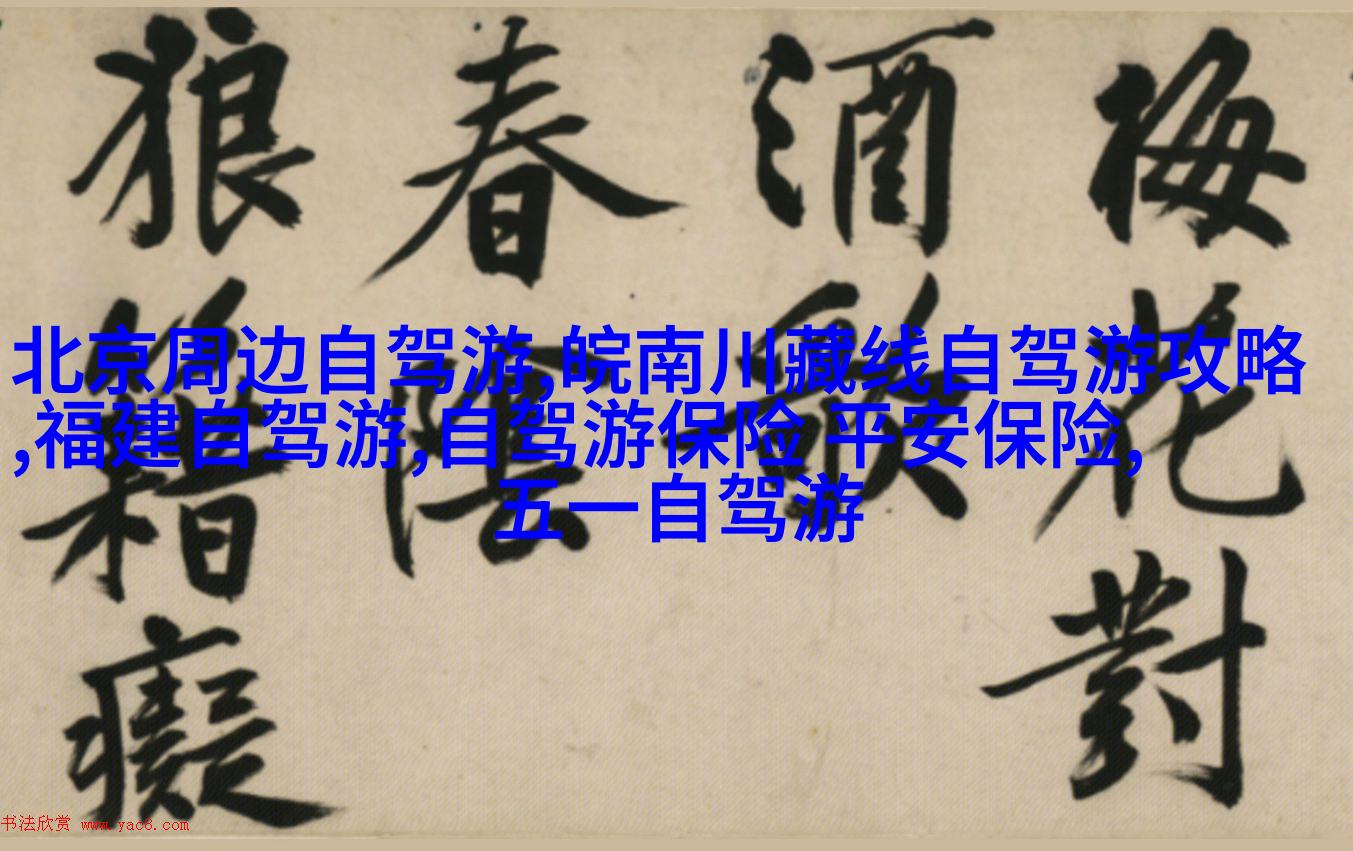 梅花對
酒
春陰
狼籍癡
北京周边自驾游,皖南川藏线自驾游攻略
,福建自驾游,自驾游保险 平安保险,
五一自驾游
书法欣赏 www.yac8.com